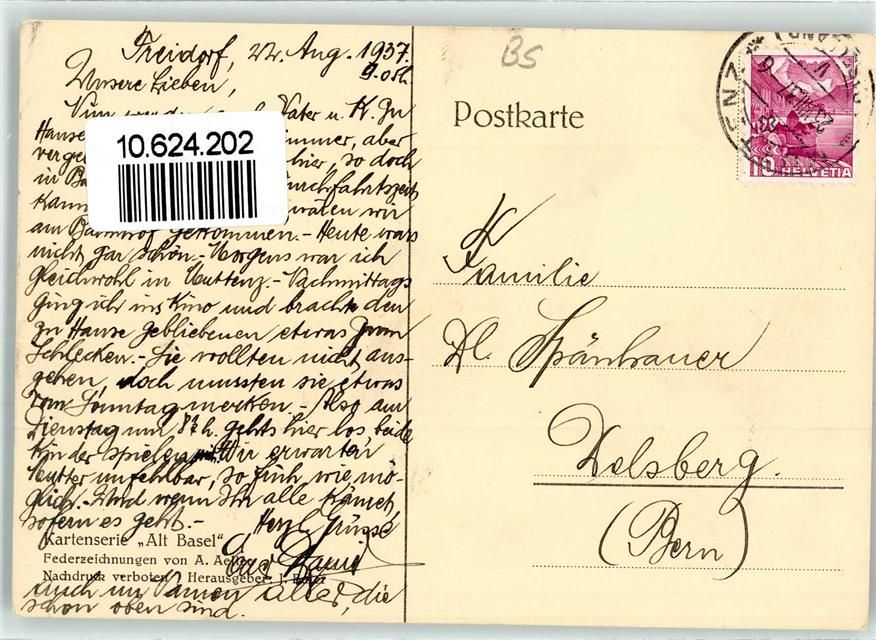 Freidorf, 22. Aug. 1937.
Unsere Lieben,
Vater u. K. zu
Hause
immer, aber
hier, so doch
in
Durchfahrtszeit
wären wir
am Bahnhof gekommen.- Heute wars
nicht gar schön.- Morgens war ich
gleichwohl in Muttenz.- Nachmittags
ging ich ins Kino und brachte den
zu Hause gebliebenen etwas zum
Schlecken.- Sie wollten nicht aus-
gehen, doch mussten sie etwas
vom Sonntag merken.- Also am
Dienstag um 8½ h. gehts hier los, beide
Kinder spielen mit. Wir erwarten
Mutter unfehlbar, so früh wie mö-
glich.- Und wenn Ihr alle kämet,
sofern es geht.-
Herzl. Grüsse
auch im Namen aller, die
schon oben sind.
Kartenserie „Alt Basel"
Federzeichnungen von A.
Nachdruck verboten / Herausgeber: J.
10.624.202
BS
Postkarte
10 HELVETIA
Familie
Dl. Spänhauer
Delsberg.
(Bern)